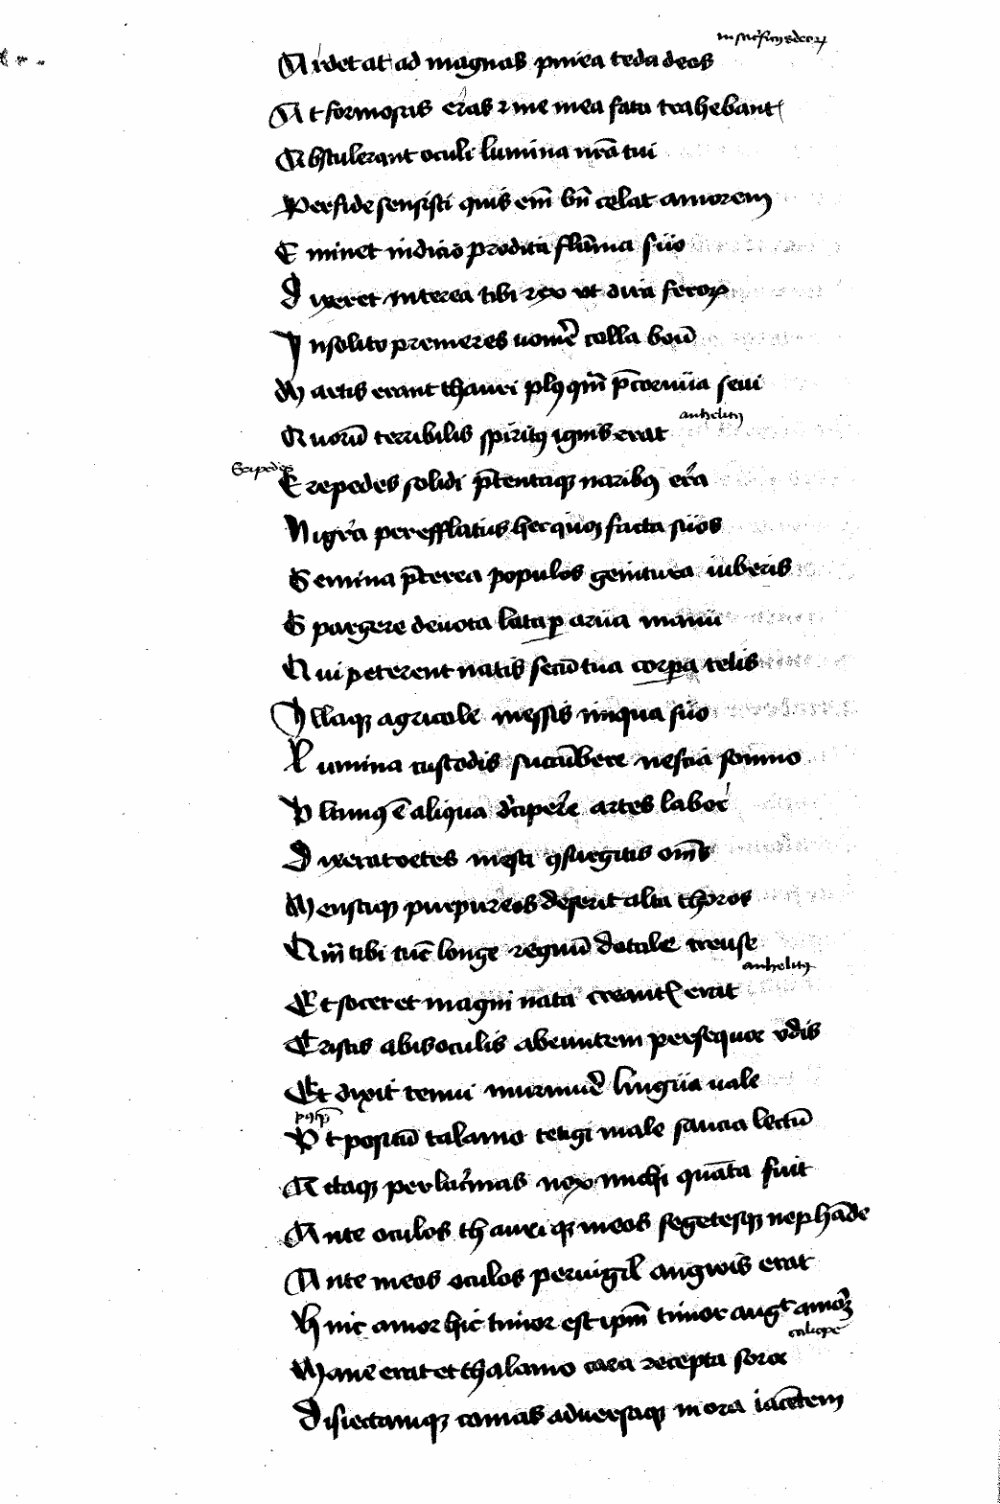 in sacrificiis deorum
Ardet at ad magnas pinea teda deos
At formosus eras ⁊ me mea fata trahebant
Abstulerant oculi lumina nr̄a tui
Perfide sensisti quis em̄ bn̄ celat amorem
Eminet indicio prodita flāma suo
Dixeret interea tibi rex ut dura feroꝝ
Insolito premeres uomē colla boū
Martis erant thauri plꝰ qm̄ p̄ cornua seui
anhelitꝰ
Quorū terribilis spiritꝰ ignis erat
Eripedes
Erepedes solidi p̄tentaqꝫ naribꝫ era
Nigra per efflatus hec quoqꝫ facta suos
Semina p̄terea populos genitura iuberis
Spargere deuota lata ꝑ arua manu
Qui peterent natis secū tua corꝑa telis
Illaqꝫ agricole messis iniqua suo
Lumina custodis sucūbere nescia somno
Vltimꝰ ē aliqua decipere artes labor
Dixerat oetes mesti ꝯsurgitis om̄s
Mensaqꝫ purpureos deserit alta thoros
Qm̄ tibi tūc longe regnū dotale creuse
anhelitꝰ
Et socer et magni nata creantꝭ erat
Tristis abis oculis abeuntem persequor udis
Et dixit tenui murmure lingua uale
Vt positū talamo tetigi male saucia lectū
Actaqꝫ per lacrimas nox michi quāta fuit
Ante oculos thauriqꝫ meos segetesqꝫ nephāde
Ante meos oculos peruigil anguis erat
Hinc amor hic timor est ipm̄ timor auget amorē
caliope
Mane erat et thalamo cara recepta soror
Disiectamqꝫ comas aduersaqꝫ in ora iacētem